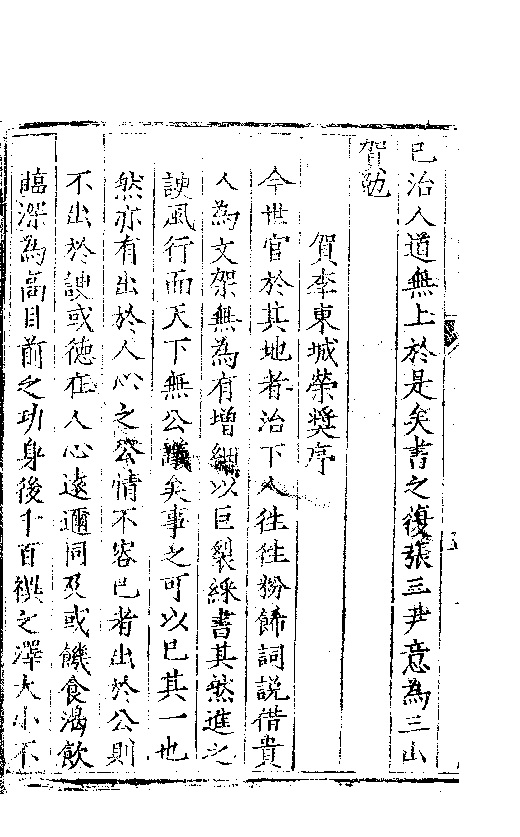 已治人道無上於是矣書之復張三尹意為三山
賀
賀李東城榮奬序
今世官於其地者治下人往往粉飾詞說借貴
人為文架無為有增細以巨裂綵書其然進之
諛風行而天下無公議矣事之可以已其一也
然亦有出於人心之公情不容已者出於公則
不出於諛或德在人心遠邇同及或饑食渴飲
臨深為高目前之功身後千百禩之澤大小不